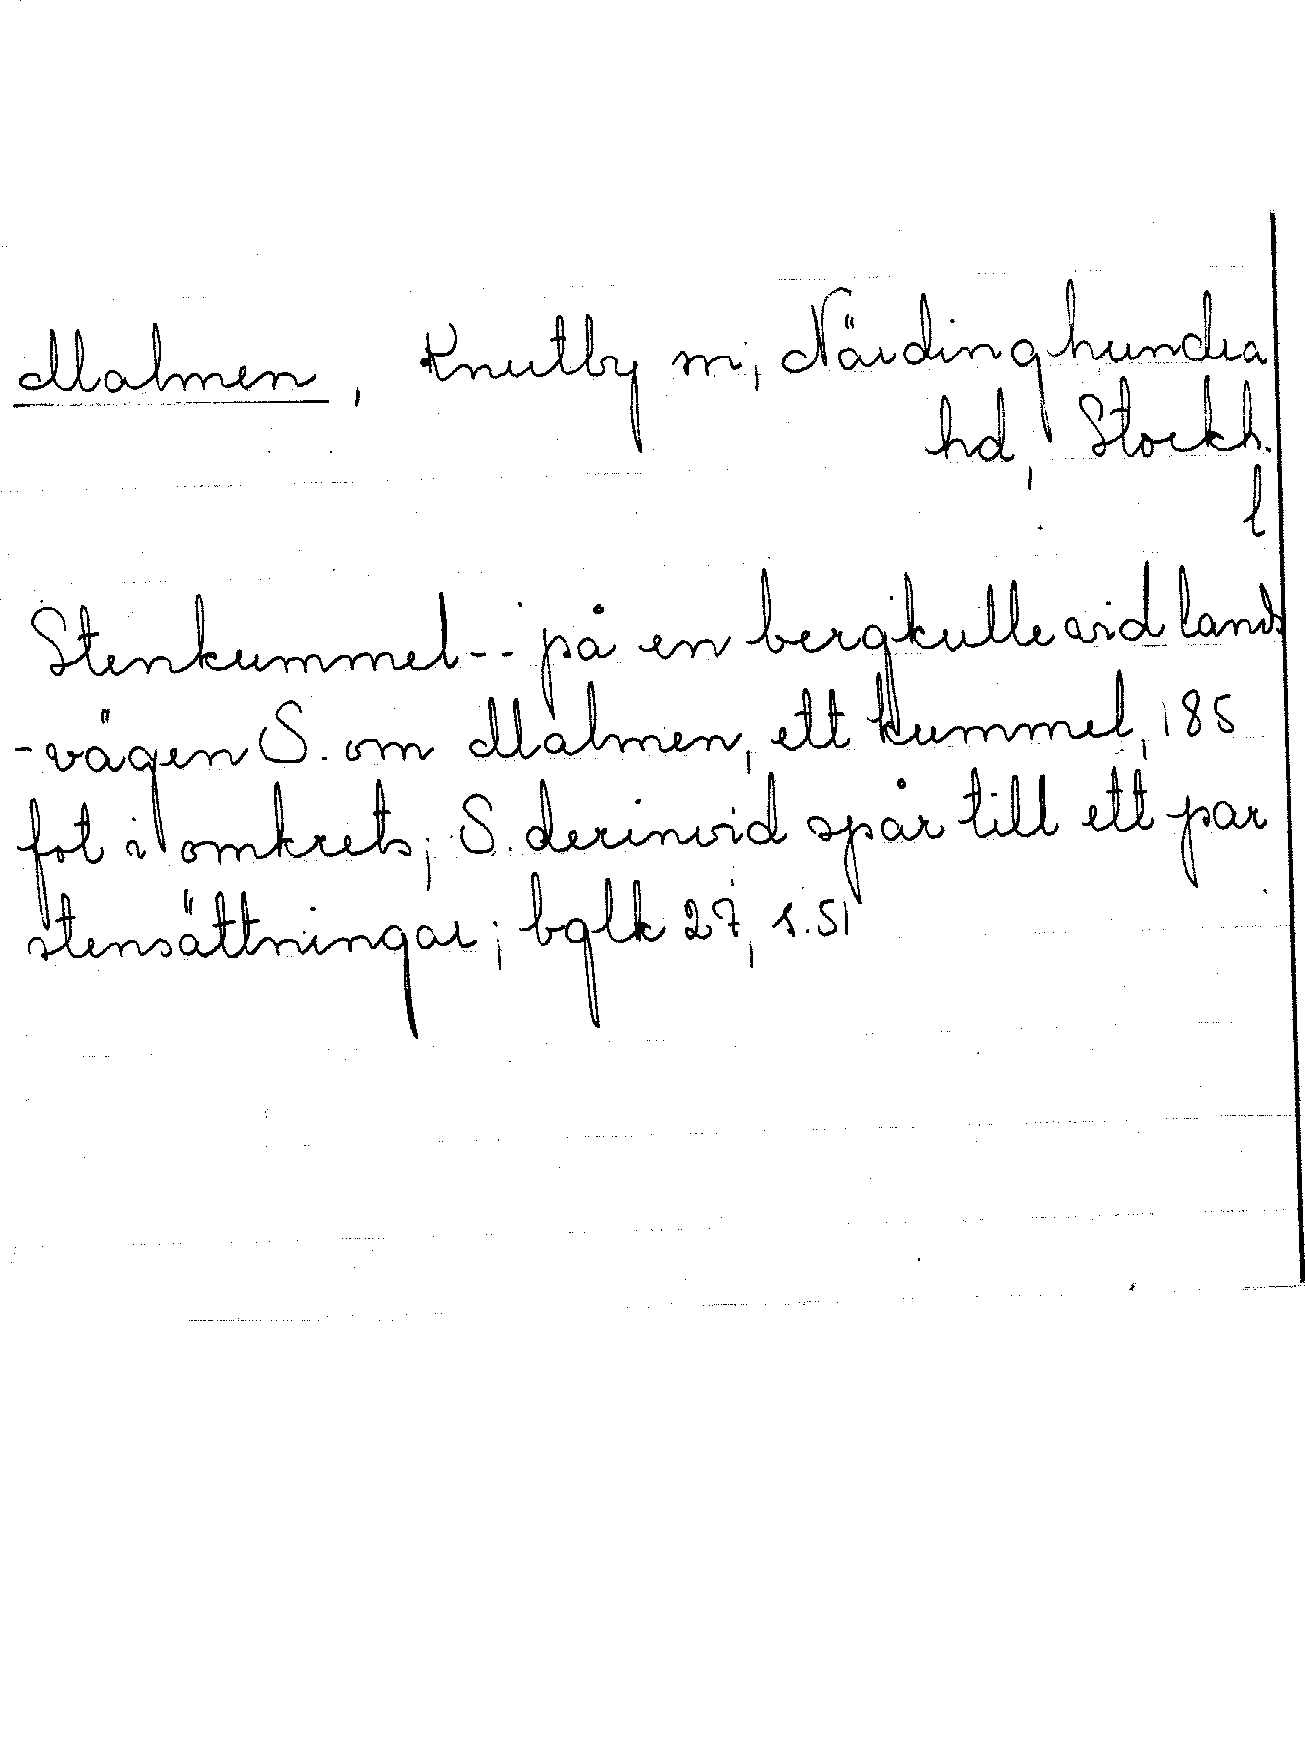 Malmen, Knutby sn, Närdinghundra
hd, Stockh.
l
Stenkummel-- på en bergkulle vid lands
-vägen S. om Malmen, ett kummel, 185
fot i omkrets; S. derinvid spår till ett par
stensättningar; bglk 27, s. 51